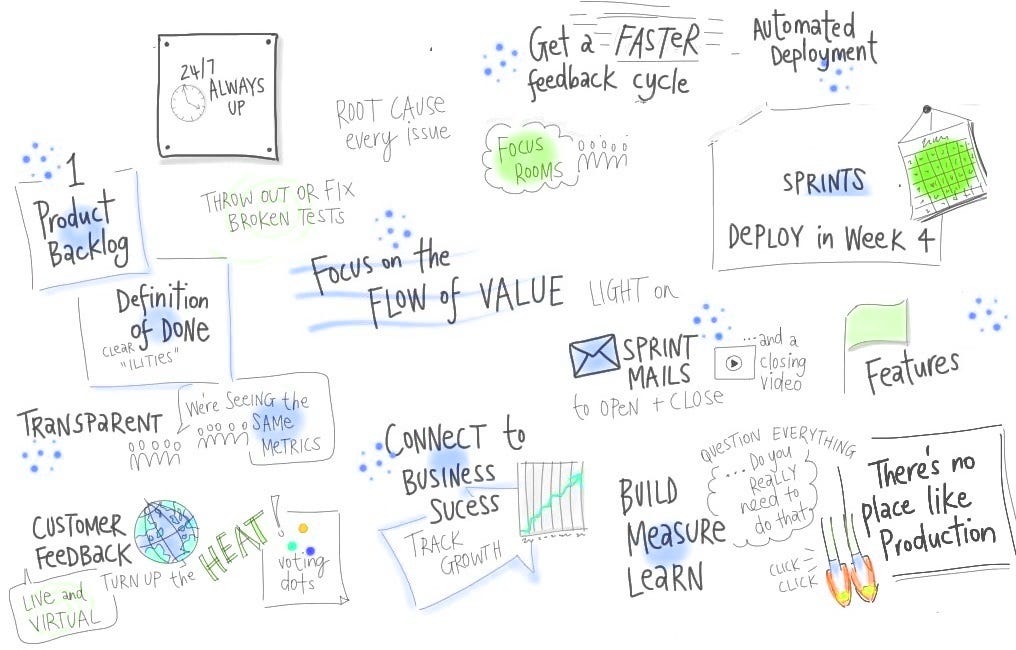 24/7
ALWAYS
UP
ROOT CAUSE
every issue
Get a FASTER
feedback cycle
Automated
Deployment
FOCUS
ROOMS
SPRINTS
DEPLOY in Week 4
1
Product
Backlog
THROW OUT OR FIX
BROKEN TESTS
Focus on the
FLOW of VALUE
LIGHT on
Definition
of DONE
CLEAR
"ILITIES"
SPRINT
MAILS
to OPEN + CLOSE
...and a
closing
video
Features
TRANSPARENT
We're SEEING the
SAME
METRICS
CONNECT to
BUSINESS
SUCESS
TRACK
GROWTH
QUESTION EVERYTHING
... Do you
REALLY
need to
do that
BUILD
MEASURE
LEARN
CLICK
CLICK
There's no
place like
Production
CUSTOMER
FEEDBACK
TURN UP the
HEAT!
voting
dots
LIVE and
VIRTUAL